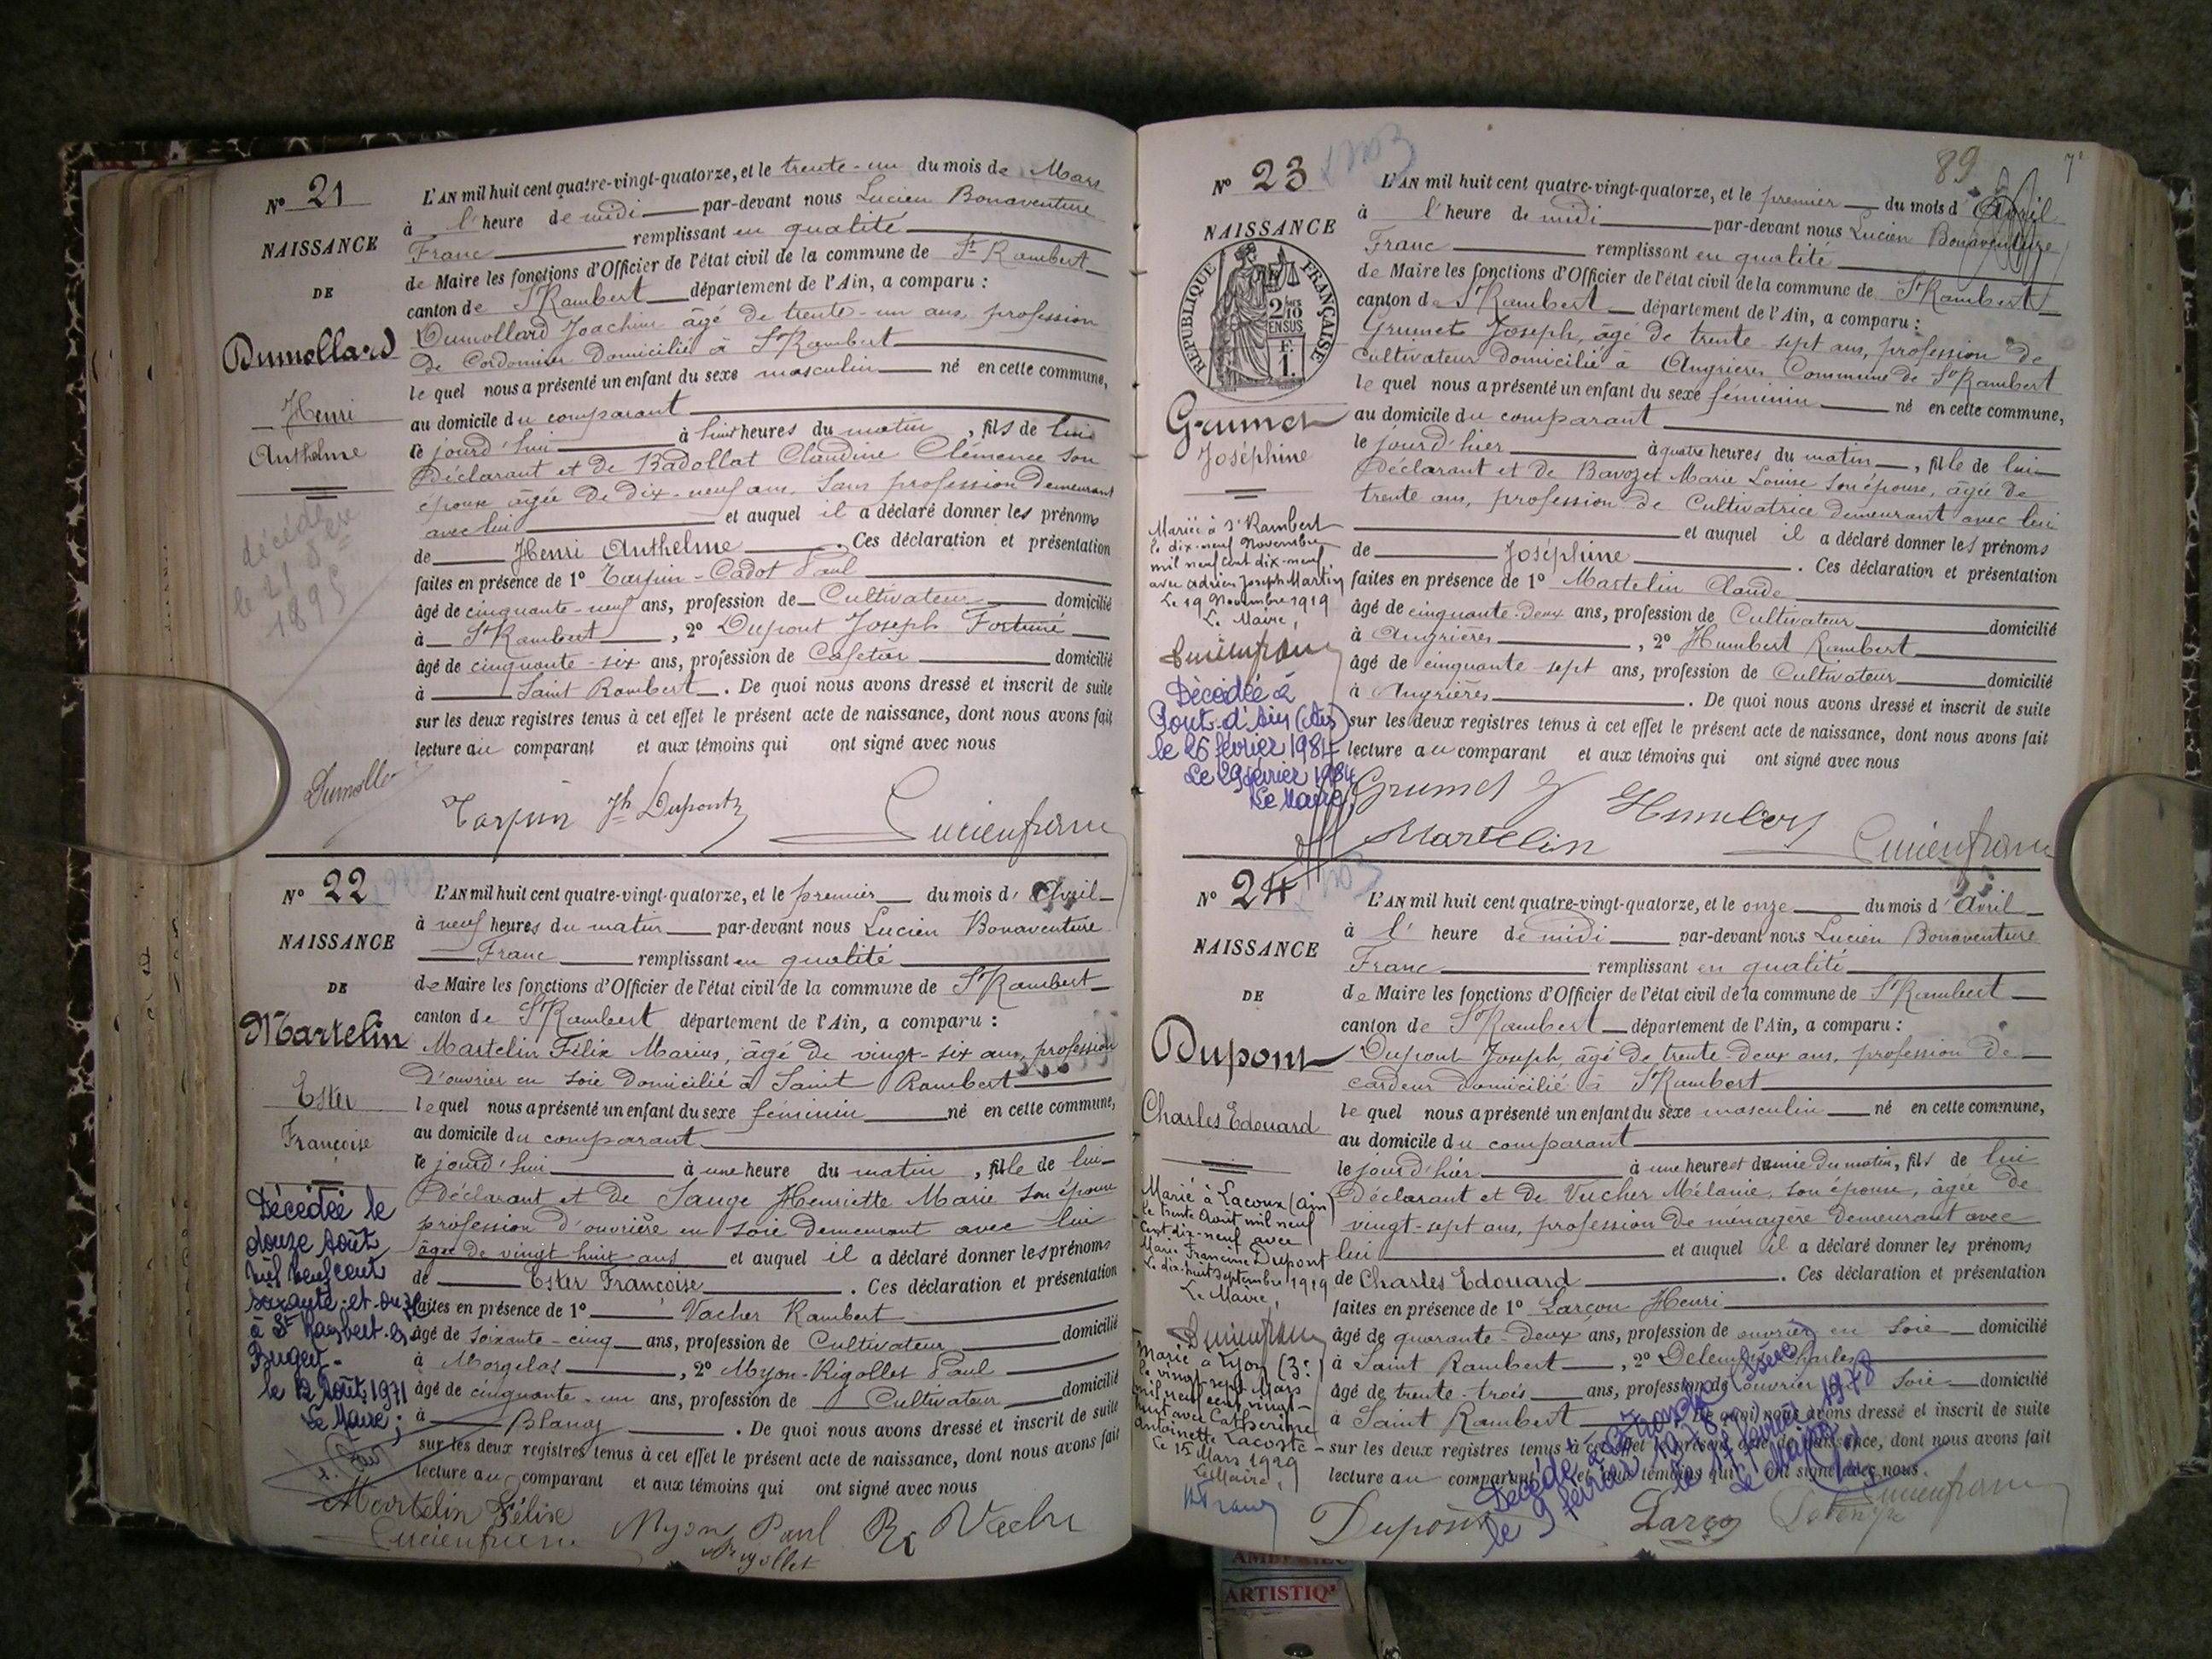 N° 21
NAISSANCE
DE
Dumollard
Henri
Anthelme
décédé
le 21 8bre
1895
L'AN mil huit cent quatre-vingt-quatorze, et le trente-un du mois de Mars
à l'heure de midi par-devant nous Lucien Bonaventure
Franc remplissant en qualité
de Maire les fonctions d'Officier de l'état civil de la commune de St Rambert
canton de St Rambert département de l'Ain, a comparu :
Dumollard Joachim âgé de trente-un ans, profession
de Cordonnier domicilié à St Rambert
le quel nous a présenté un enfant du sexe masculin né en cette commune,
au domicile du comparant
le jourd'hui à huit heures du matin, fils de lui
Déclarant et de Badollat Claudine Clémence son
épouse âgée de dix-neuf ans, sans profession demeurant
avec lui et auquel il a déclaré donner les prénoms
de Henri Anthelme. Ces déclaration et présentation
faites en présence de 1° Tarpin-Cadot Paul
âgé de cinquante-neuf ans, profession de Cultivateur domicilié
à St Rambert, 2° Dupont Joseph Fortuné
âgé de cinquante-six ans, profession de Cafetier domicilié
à Saint Rambert. De quoi nous avons dressé et inscrit de suite
sur les deux registres tenus à cet effet le présent acte de naissance, dont nous avons fait
lecture au comparant et aux témoins qui ont signé avec nous
Tarpin Jh Dupont Lucien franc
N° 22
NAISSANCE
DE
Martelin
Ester
Françoise
Décédée le
douze Août
mil neuf cent
soixante-et-onze
à St Rambert-en-
Bugey.
le 12 Août 1971
Le Maire;
L'AN mil huit cent quatre-vingt-quatorze, et le premier du mois d'Avril
à neuf heures du matin par-devant nous Lucien Bonaventure
Franc remplissant en qualité
de Maire les fonctions d'Officier de l'état civil de la commune de St Rambert
canton de St Rambert département de l'Ain, a comparu :
Martelin Félix Marius, âgé de vingt-six ans, profession
d'ouvrier en soie domicilié à Saint Rambert
le quel nous a présenté un enfant du sexe féminin né en cette commune,
au domicile du comparant
le jourd'hui à une heure du matin, fille de lui
Déclarant et de Sauge Henriette Marie son épouse
profession d'ouvrière en soie demeurant avec lui
âgée de vingt-huit ans et auquel il a déclaré donner les prénoms
de Ester Françoise. Ces déclaration et présentation
faites en présence de 1° Vacher Rambert
âgé de soixante-cinq ans, profession de Cultivateur domicilié
à Morgelas, 2° Myon-Rigollet Paul
âgé de cinquante-un ans, profession de Cultivateur domicilié
à Blanay. De quoi nous avons dressé et inscrit de suite
sur les deux registres tenus à cet effet le présent acte de naissance, dont nous avons fait
lecture au comparant et aux témoins qui ont signé avec nous
Martelin Félix
Lucien franc Myon Paul Vache
Rigollet
89
N° 23
NAISSANCE
REPUBLIQUE FRANÇAISE
2/10
EN SUS
F.
1.
Grumet
Joséphine
Mariée à St Rambert
le dix-neuf Novembre
mil neuf cent dix-neuf,
avec Adrien Joseph Martin
Le 19 Novembre 1919
Le Maire,
Lucien franc
Décédée à
Pont-d'Ain (Ain)
le 26 février 1984
Le 29 février 1984
Le Maire,
L'AN mil huit cent quatre-vingt-quatorze, et le premier du mois d'Avril
à l'heure de midi par-devant nous Lucien Bonaventure
Franc remplissant en qualité
de Maire les fonctions d'Officier de l'état civil de la commune de St Rambert
canton de St Rambert département de l'Ain, a comparu :
Grumet Joseph, âgé de trente-sept ans, profession de
cultivateur domicilié à Angrières Commune de St Rambert
le quel nous a présenté un enfant du sexe féminin né en cette commune,
au domicile du comparant
le jourd'hier à quatre heures du matin, fille de lui
Déclarant et de Bavozet Marie Louise son épouse, âgée de
trente ans, profession de Cultivatrice demeurant avec lui
et auquel il a déclaré donner les prénoms
de Joséphine. Ces déclaration et présentation
faites en présence de 1° Martelin Claude
âgé de cinquante-deux ans, profession de Cultivateur domicilié
à Angrières, 2° Humbert Rambert
âgé de cinquante-sept ans, profession de Cultivateur domicilié
à Angrières. De quoi nous avons dressé et inscrit de suite
sur les deux registres tenus à cet effet le présent acte de naissance, dont nous avons fait
lecture au comparant et aux témoins qui ont signé avec nous
Grumet J Humbert
Martelin Lucien franc
N° 24
NAISSANCE
DE
Dupont
Charles Edouard
Marié à Lacoux (Ain)
le trente Août mil neuf
cent dix-neuf avec
Marie Francine Dupont
Le dix-huit Septembre 1919
Le Maire,
Lucien franc
Marié à Lyon (3e)
le vingt-sept Mars
mil neuf cent vingt-
huit avec Catherine
Antoinette Lacoste
Le 15 Mars 1929
Le Maire,
L'AN mil huit cent quatre-vingt-quatorze, et le onze du mois d'Avril
à l'heure de midi par-devant nous Lucien Bonaventure
Franc remplissant en qualité
de Maire les fonctions d'Officier de l'état civil de la commune de St Rambert
canton de St Rambert département de l'Ain, a comparu :
Dupont Joseph, âgé de trente-deux ans, profession de
cardeur domicilié à St Rambert
le quel nous a présenté un enfant du sexe masculin né en cette commune,
au domicile du comparant
le jourd'hier à une heure et demie du matin, fils de lui
Déclarant et de Vucher Mélanie, son épouse, âgée de
vingt-sept ans, profession de ménagère demeurant avec
lui et auquel il a déclaré donner les prénoms
de Charles Edouard. Ces déclaration et présentation
faites en présence de 1° Larçon Henri
âgé de quarante-deux ans, profession de ouvrier en soie domicilié
à Saint Rambert, 2° Charles
âgé de trente-trois ans, profession de ouvrier soie domicilié
à Saint Rambert De quoi nous avons dressé et inscrit de suite
sur les deux registres tenus à cet effet le présent acte de naissance, dont nous avons fait
lecture au comparant et aux témoins qui ont signé avec nous.
Décédé à (Isère)
le 9 février 1978
le 17 février 1978
Le Maire
Dupont Larçon Lucien franc
ARTISTIQ